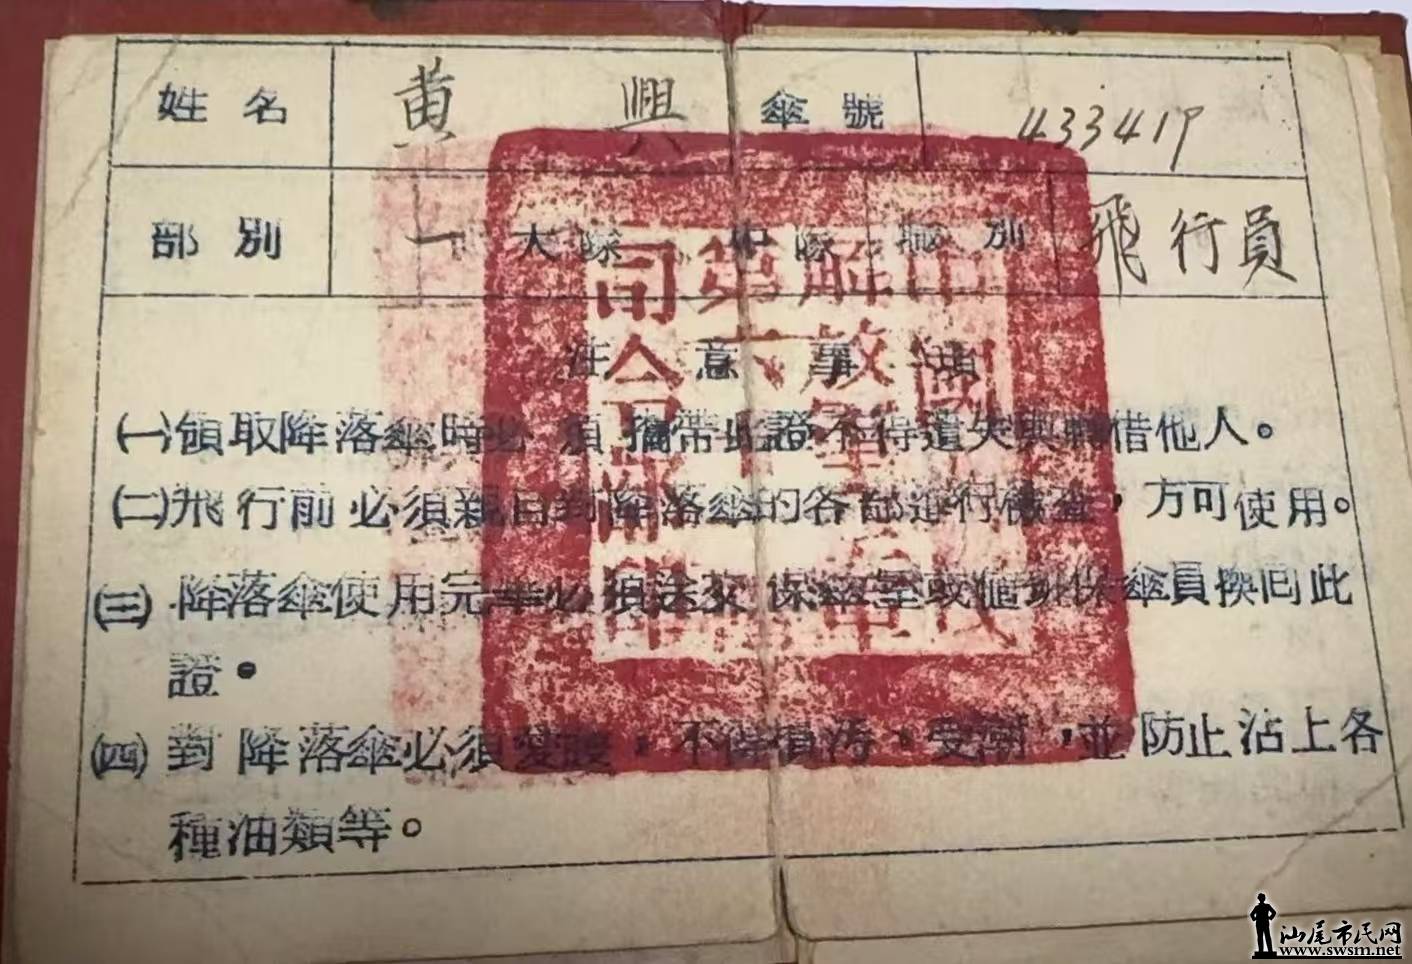 姓名 黄興 傘號 433419
部別 一大隊 中隊 職別 飛行員
注意事項
(一)領取降落傘時必須攜帶此證不得遺失與轉借他人。
(二)飛行前必須親自對降落傘的各部進行檢查，方可使用。
(三)降落傘使用完畢必須送交保傘室或值班保傘員換回此
證。
(四)對降落傘必須愛護，不得損污、受潮，並防止沾上各
種油類等。
中國人民
解放軍空軍
司令部
汕尾市民网
www.swsm.net